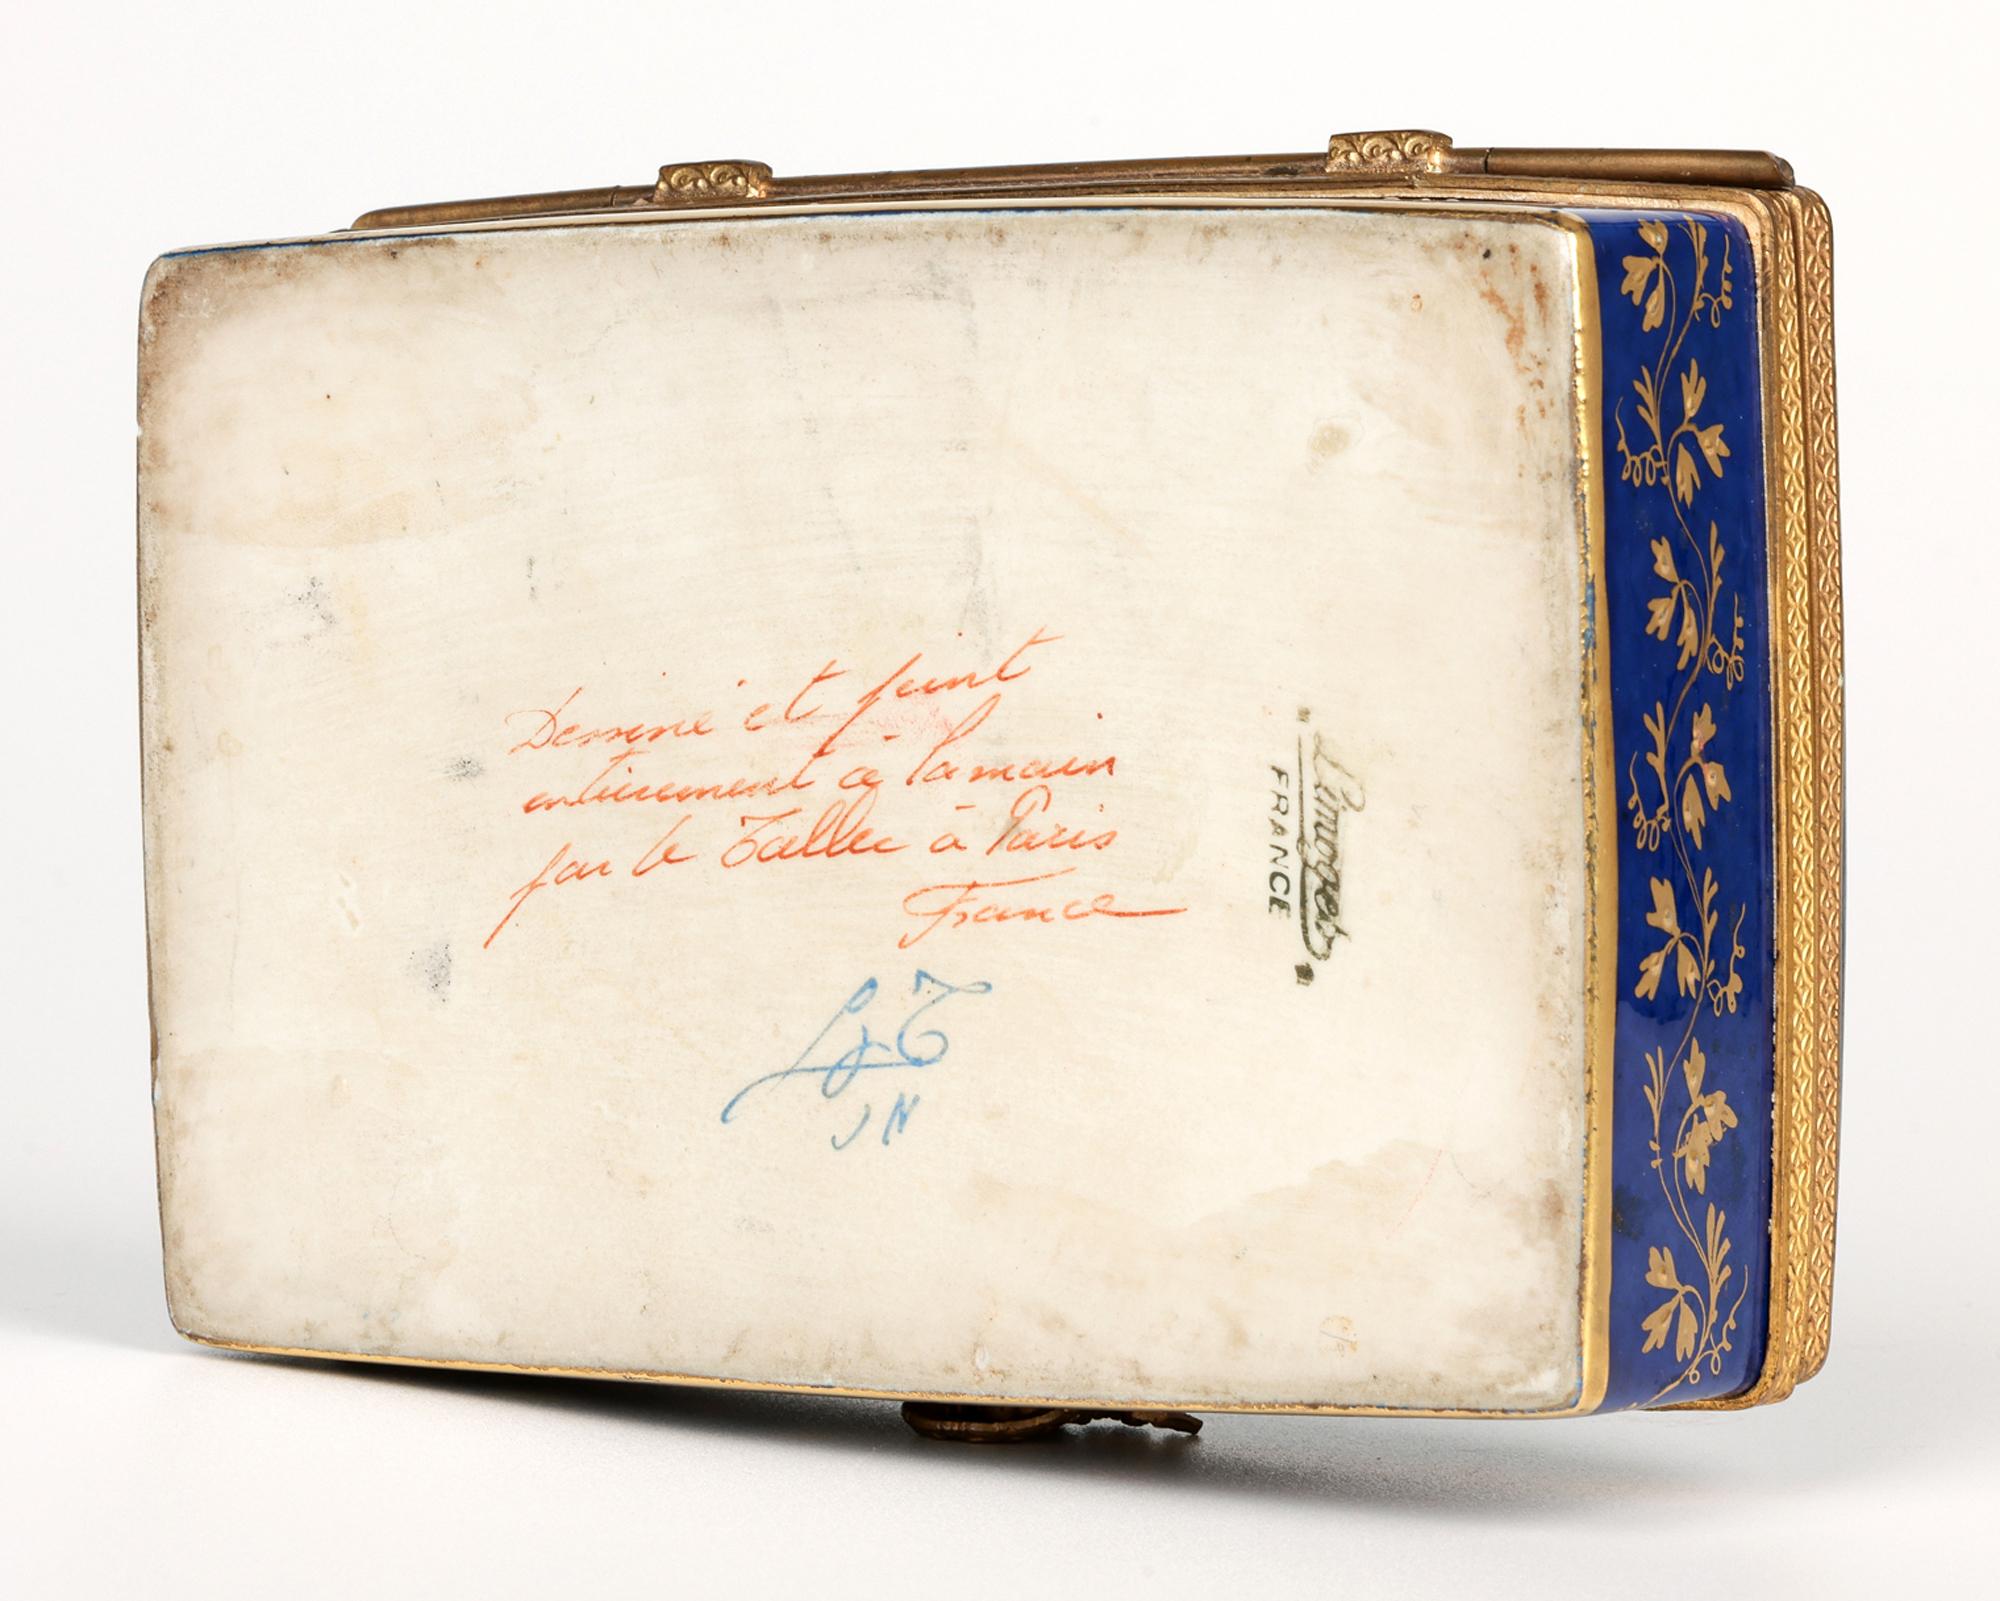 Dessiné et peint
entièrement à la main
par Le Tallec à Paris
France
L T
J N
Limoges
FRANCE